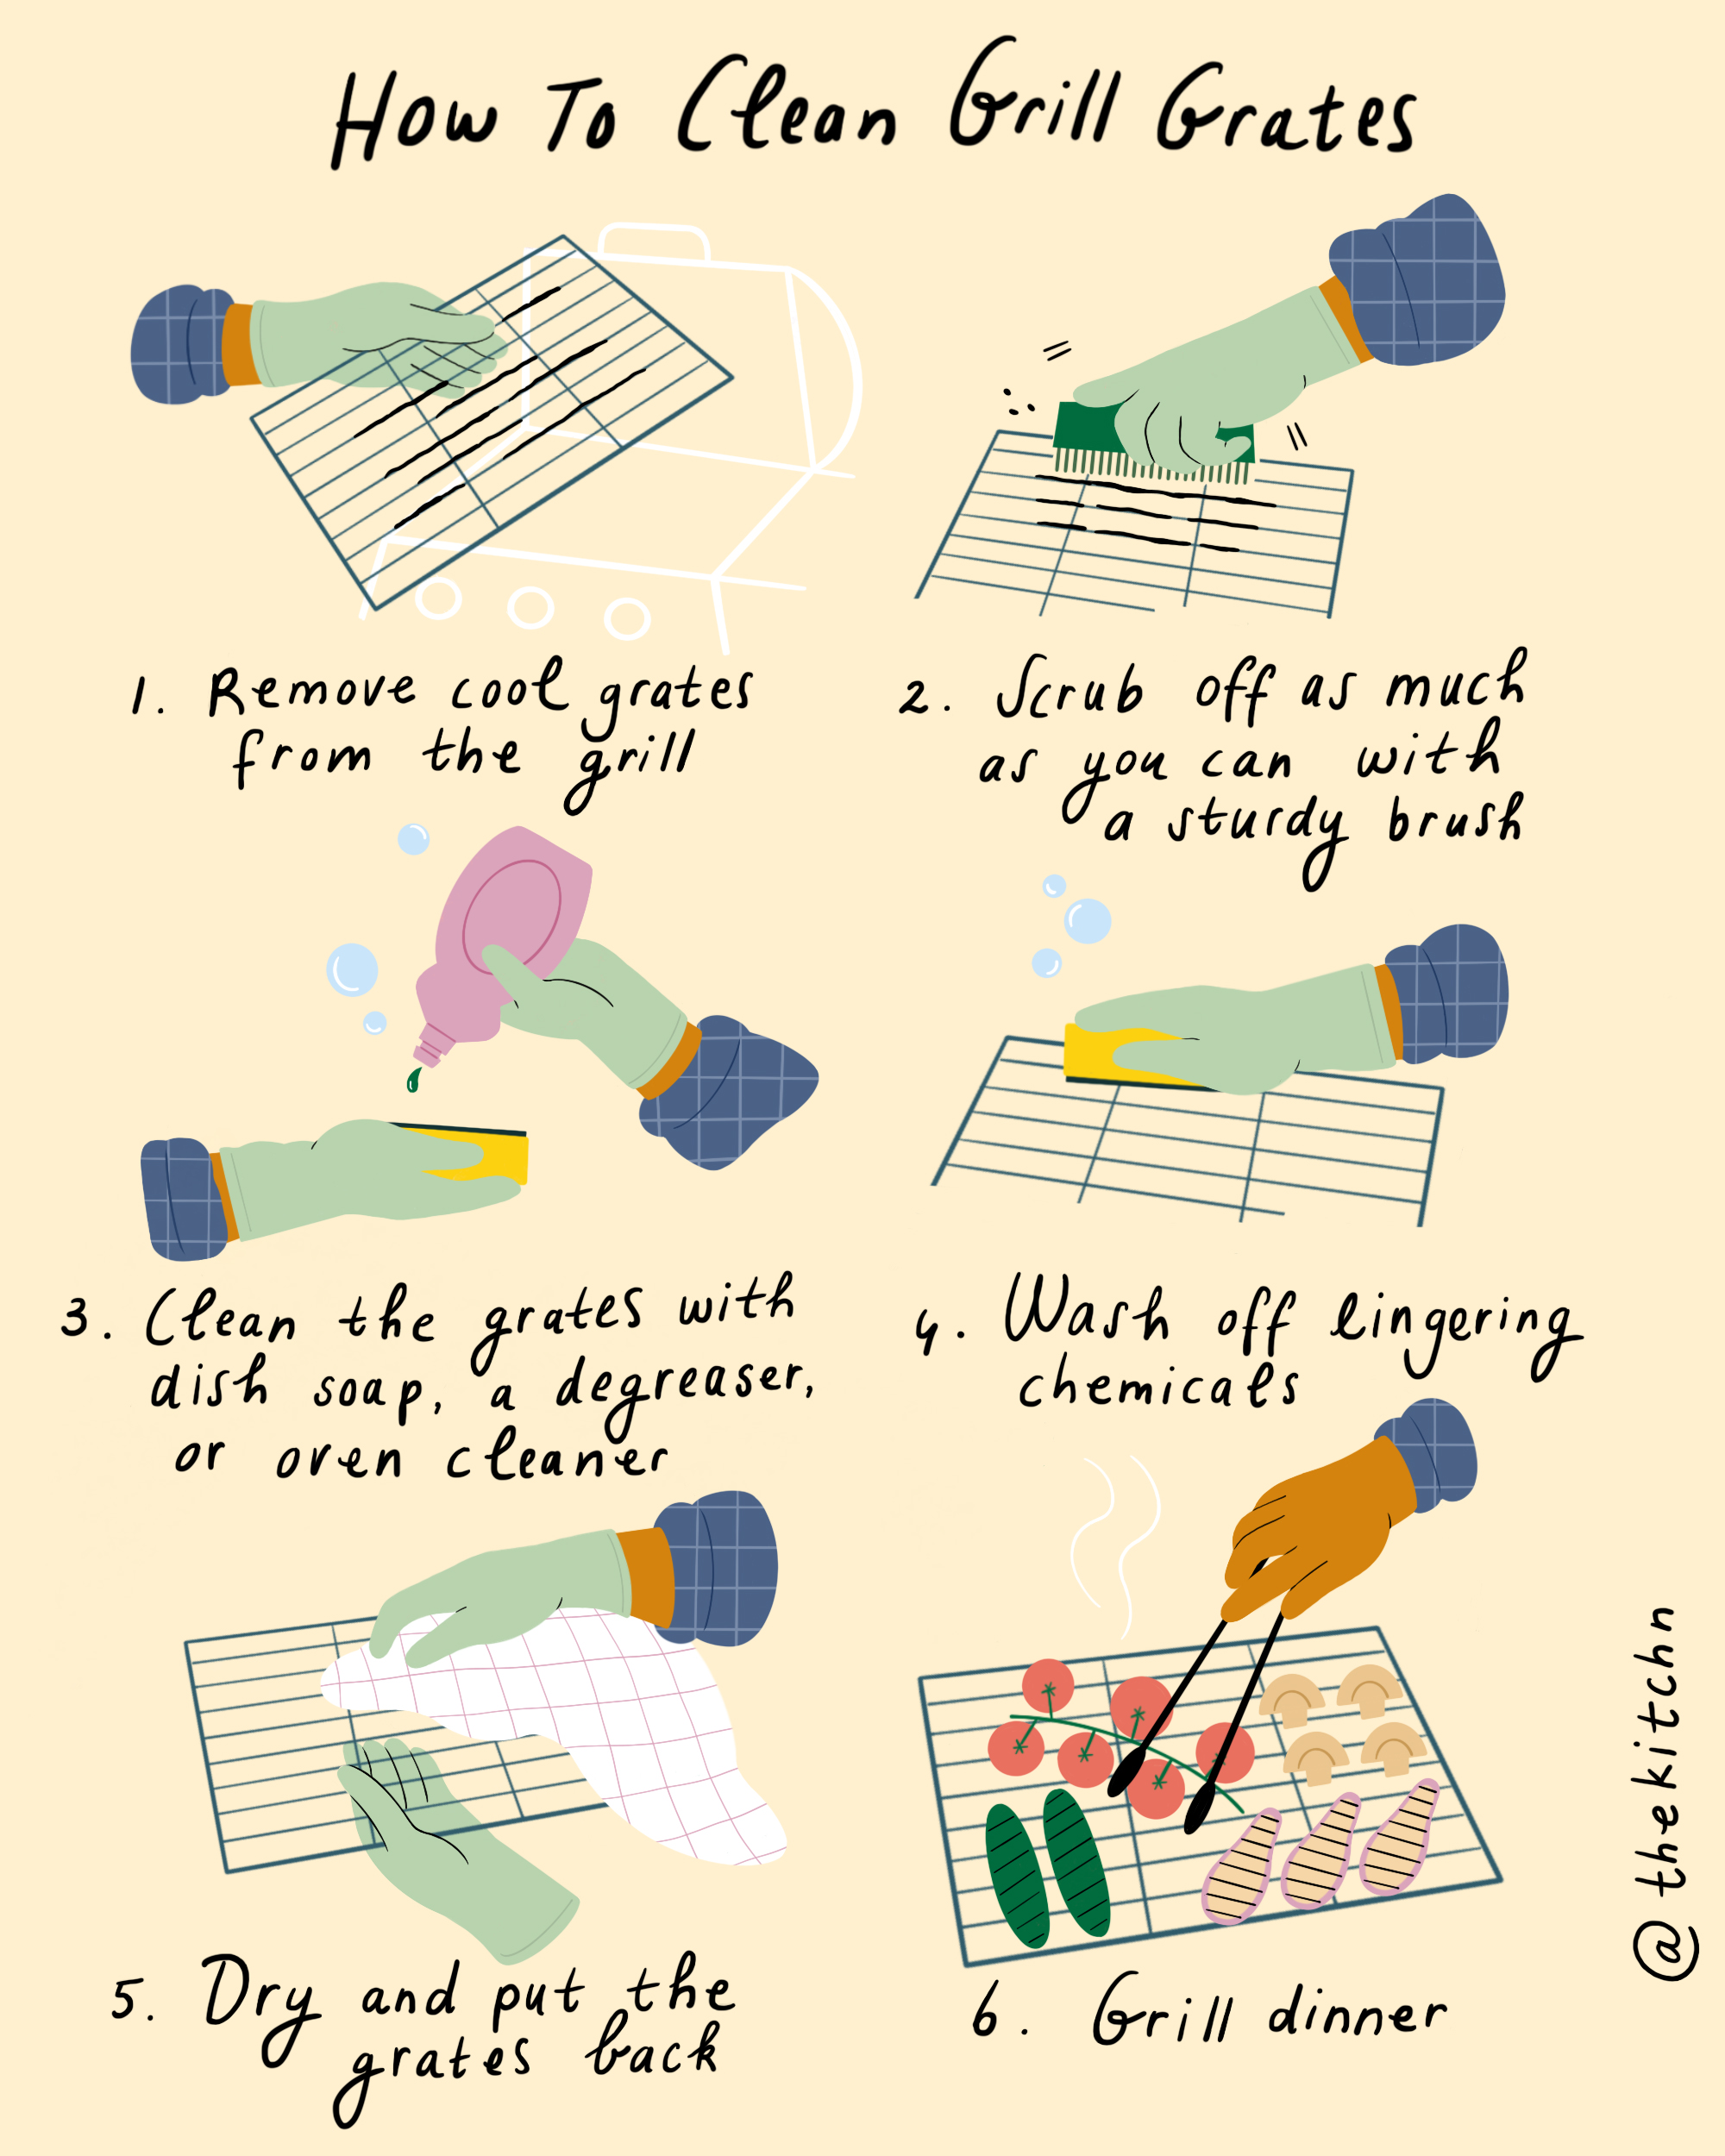 How To Clean Grill Grates
1. Remove cool grates
from the grill
2. Scrub off as much
as you can with
a sturdy brush
3. Clean the grates with
dish soap, a degreaser,
or oven cleaner
4. Wash off lingering
chemicals
5. Dry and put the
grates back
6. Grill dinner
@thekitchn